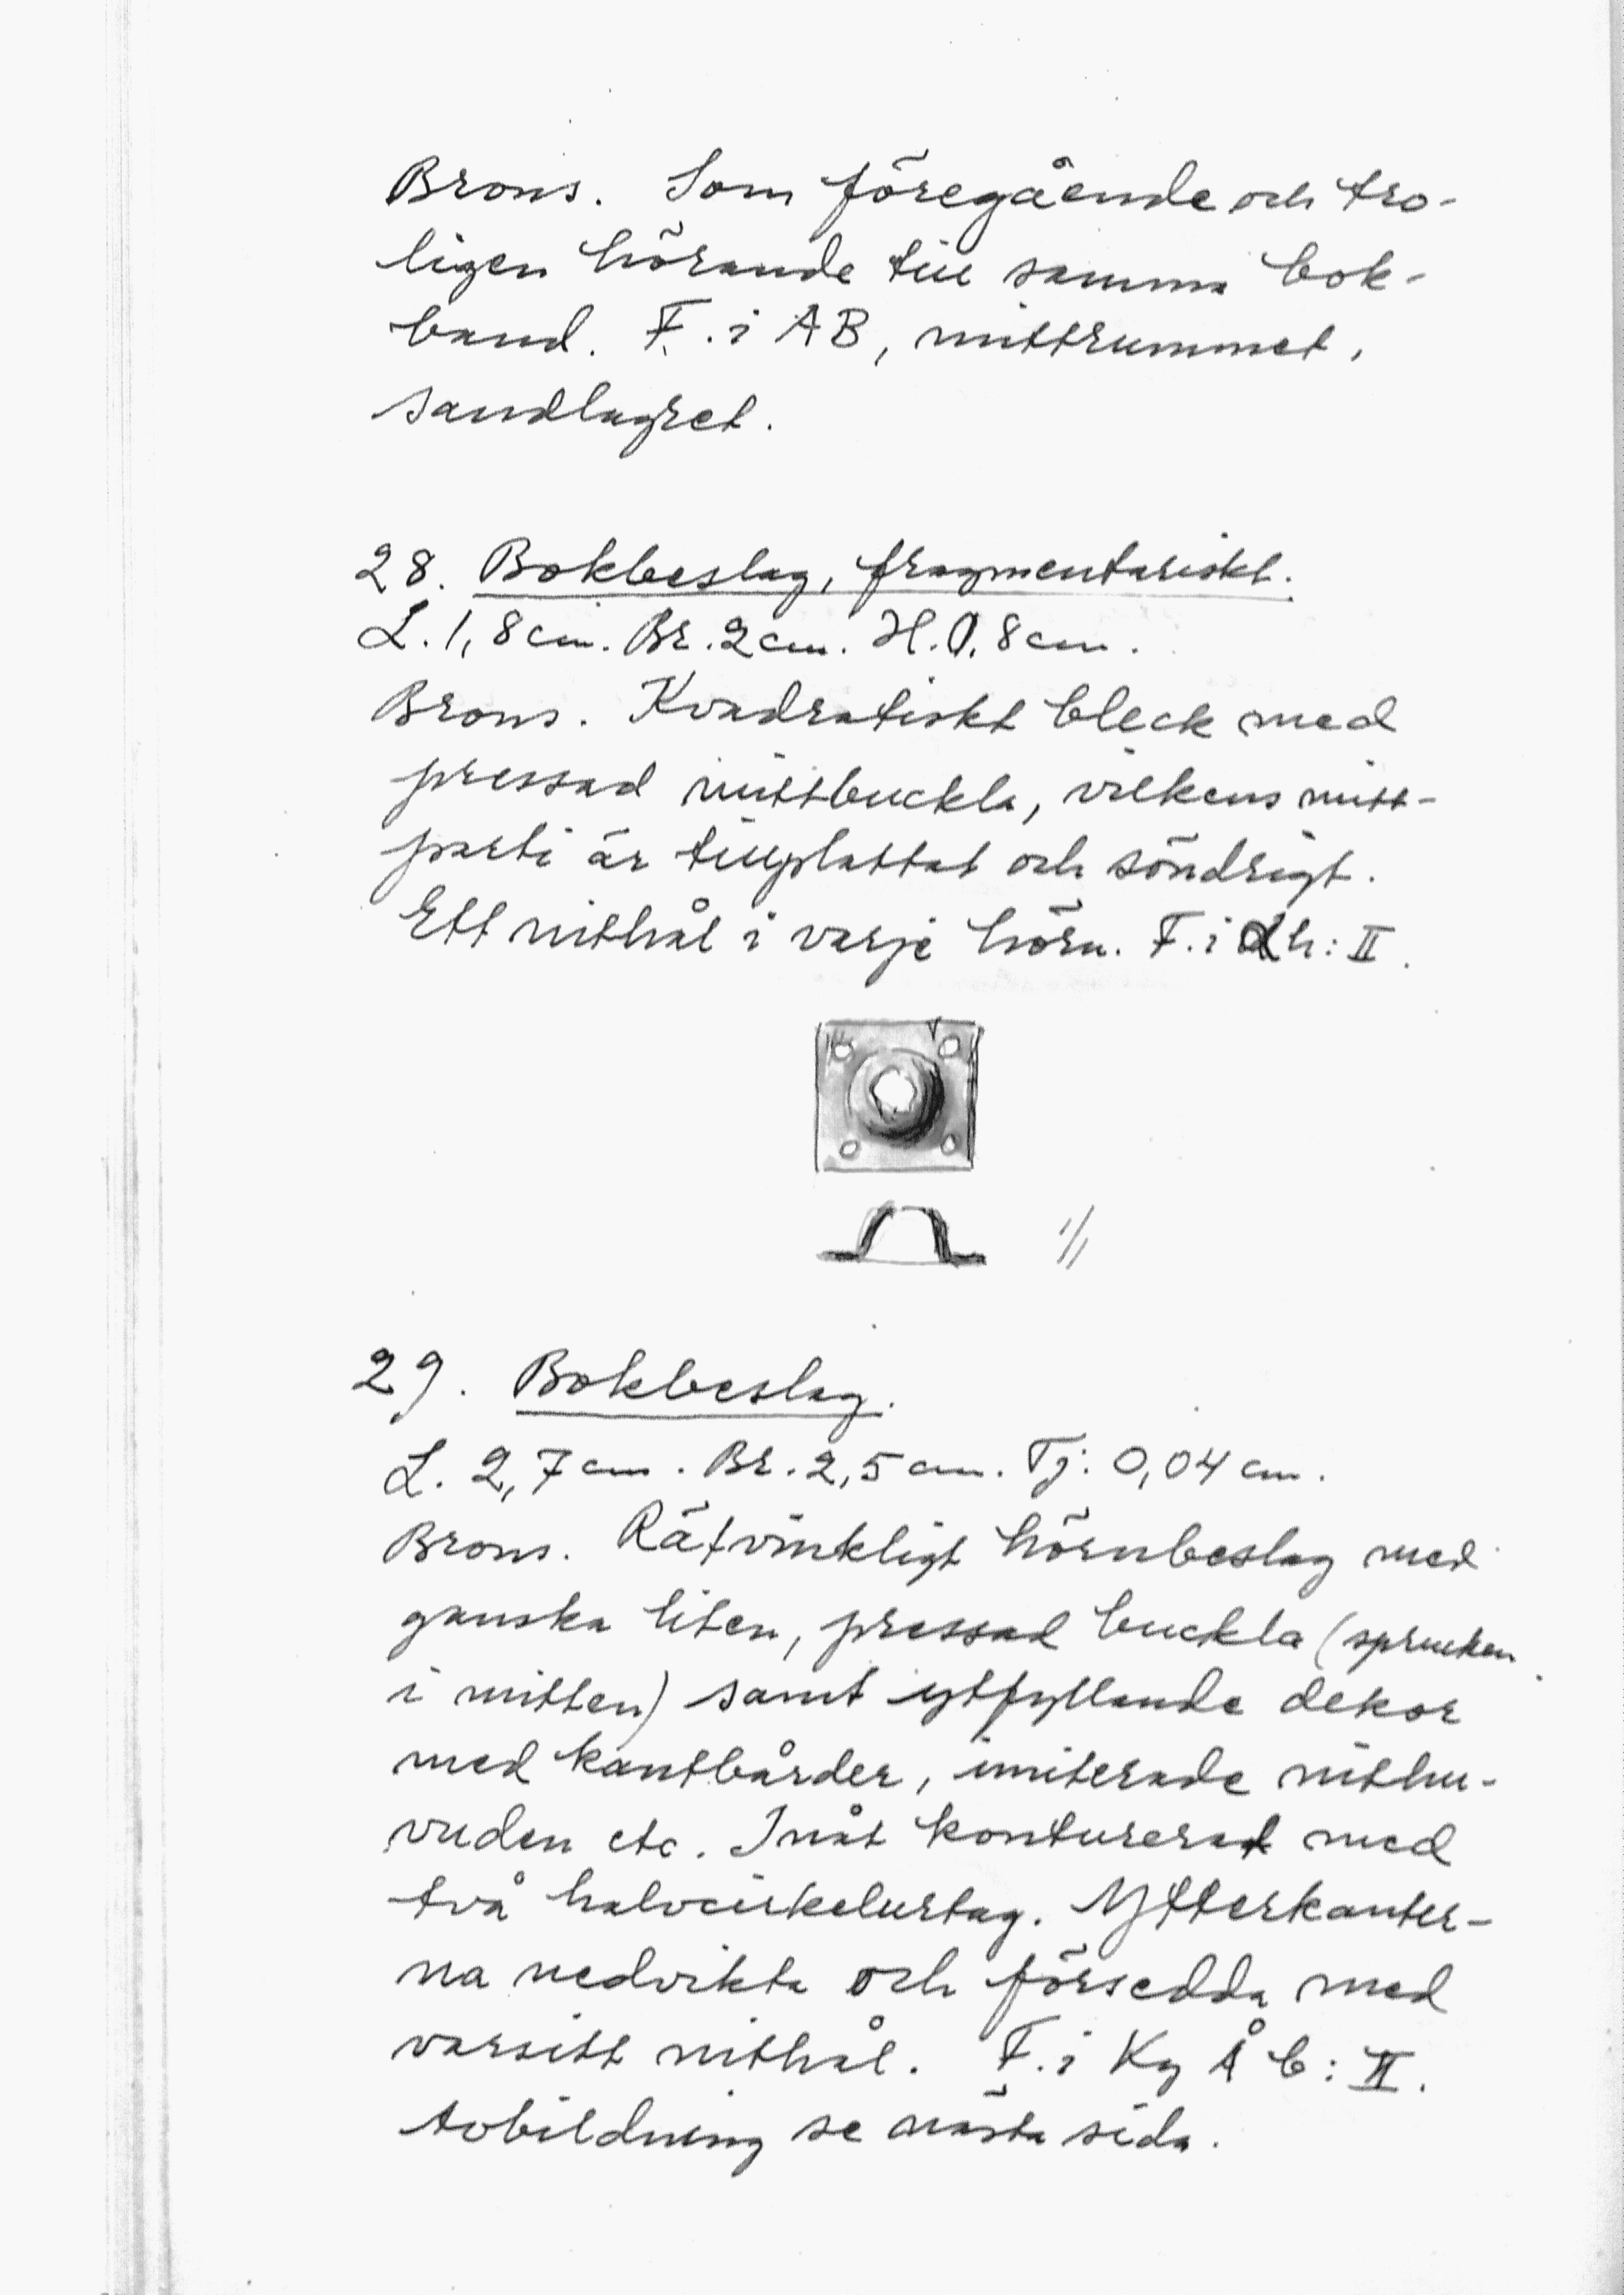 Brons. Som föregående och tro-
ligen hörande till samma bok-
band. F. i AB, mittrummet,
sandlagret.
28. Bokbeslag, fragmentariskt.
L. 1,8 cm. Br. 2 cm. H. 0,8 cm.
Brons. Kvadratiskt bleck med
pressad mittbuckla, vilkens mitt-
parti är tillplattat och söndrigt.
Ett nithål i varje hörn. F. i h: II.
1/1
29. Bokbeslag.
L. 2,7 cm. Br. 2,5 cm. Tj: 0,04 cm.
Brons. Rätvinkligt hörnbeslag med
ganska liten, pressad buckla (sprucken
i mitten) samt ytfyllande dekor
med kantbårder, imiterade nithu-
vuden etc. Inåt konturerat med
två halvcirkelurtag. Ytterkanter-
na nedvikta och försedda med
varsitt nithål. F. i Kg Å b: II.
Avbildning se nästa sida.